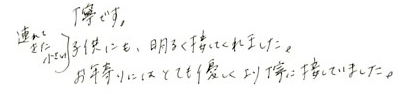 丁寧です。
連れてきた小さい子供にも、明るく接してくれました。
お年寄りにはとても優しくより丁寧に接していました。